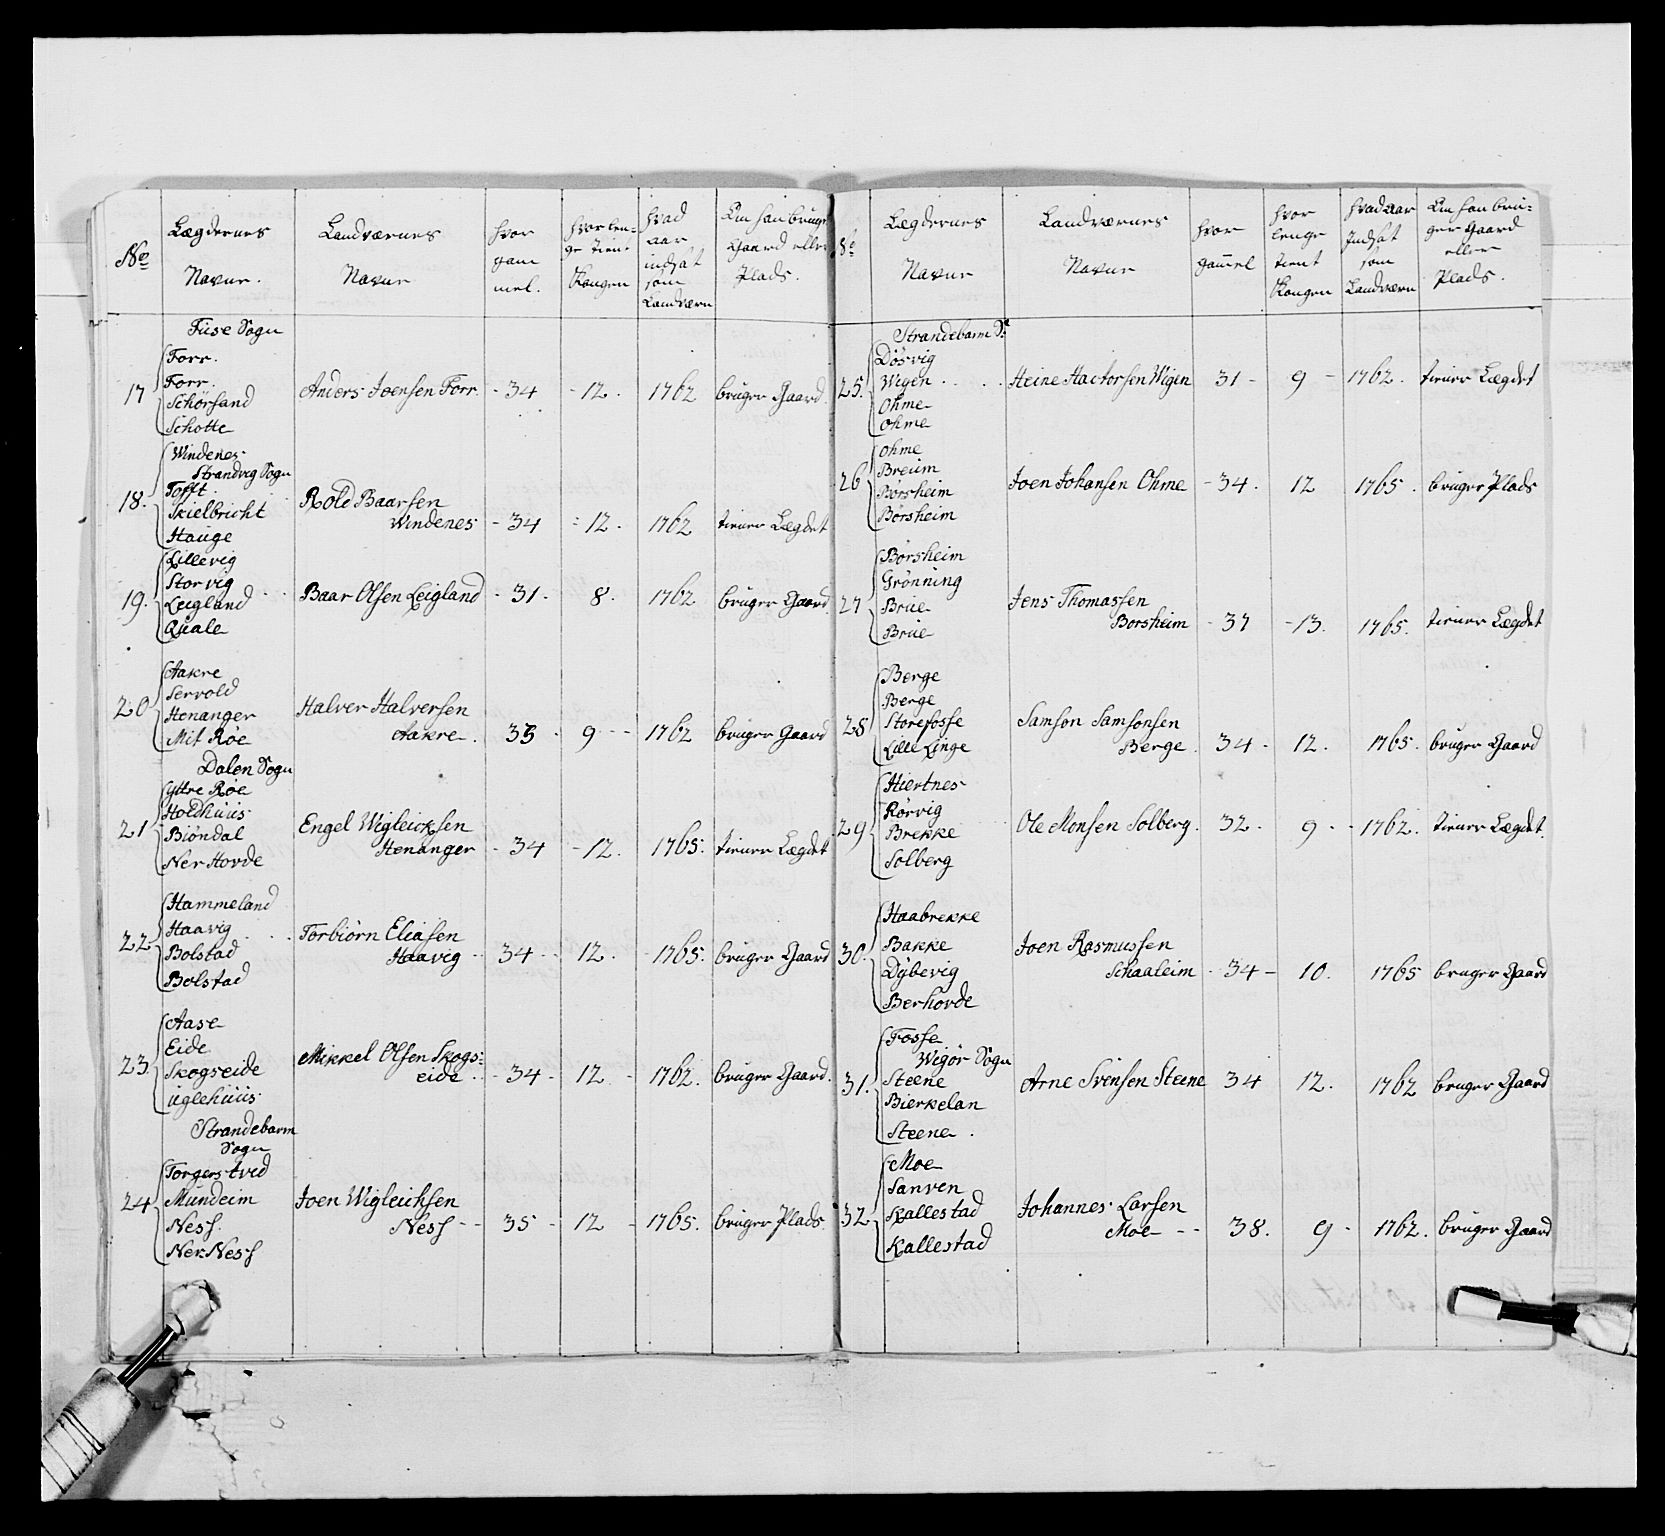 No
Lægdernes
Navne.
Landværnes
Navne
hvor
gam
mel.
hvor len-
ge tient
Kongen
hvad
aar
indsat
som
Landværn
Om han bruger
Gaard eller
Plads.
Fuse Sogn
17
Forr.
Forr.
Schörsand
Schotte
Anders Joensen Forr. - 34 - 12. 1762 bruger Gaard
18.
Windenes
Strandvig Sogn
Tofft
Skielbricht
Hauge
Rold Baarsen
Windenes - 34 - 12. 1762 tiener Lægdet
19.
Lillevig
Storvig
Leigland
Quale
Baar Olsen Leigland - 31. 8. 1762 bruger Gaard
20
Aakre
Servold
Henanger
Mit Röe
Halver Halversen
Aakre. 35 9 - 1762 bruger Gaard
Dalen Sogn
21
Yttre Röe
Holdhuus
Biöndal
Ner Hovde
Engel Wigleicksen
Henanger - 34 - 12. 1765. tiener Lægdet
22
Hammeland
Haavig
Bolstad
Bolstad
Torbiörn Eliasen
Haavig - 34 - 12. 1765. bruger Gaard
23
Aase
Eide
Skogseide
Uglehuus
Mikkel Olsen Skogs-
eide - 34 - 12 - 1762. bruger Gaard.
Strandebarm
Sogn
24
Torgerstved
Mundeim
Ness.
Ner Ness
Joen Wigleichsen
Ness - 35 - 12 - 1765. bruger Plads.
No
Lægdernes
Navne
Landværnes
Navne
hvor
gammel
hvor
lenge
tient
Kongen
hvad aar
Indsat
som
Landværn
Om han bru-
ger Gaard
eller
Plads.
Strandebarm S.
25.
Dösvig
Wigen
Ohme
Ohme
Heine Hactorsen Wigen 31 - 9 - 1762. tiener Lægdet
26
Ohme
Breum
Börsheim
Börsheim
Joen Johansen Ohme - 34. 12 1765. bruger Plads
27
Börsheim
Grönning
Brue
Brue
Jens Thomassen
Borsheim - 37 - 13. 1765. tiener Lægdet
28
Berge
Berge
Storefosse
Lille Linge
Samson Samsonsen
Berge. 34 - 12. 1765. bruger Gaard
29
Hiertnes
Rörvig
Brekke
Solberg
Ole Monsen Solberg. 32 - 9 - 1762. tiener Lægdet.
30.
Haabrekke
Bakke
Dybevig
Berhovde
Joen Rasmussen
Schaaleim - 34 - 10. 1765 bruger Gaard
31.
Fosse
Wigör Sogn
Steene
Bierkelan
Steene.
Arne Svensen Steene 34 12. 1762 bruger Gaard
32
Moe
Sanven
Kallestad
Kallestad
Johannes Larsen
Moe - - 38. 9 - 1762. bruger Gaard